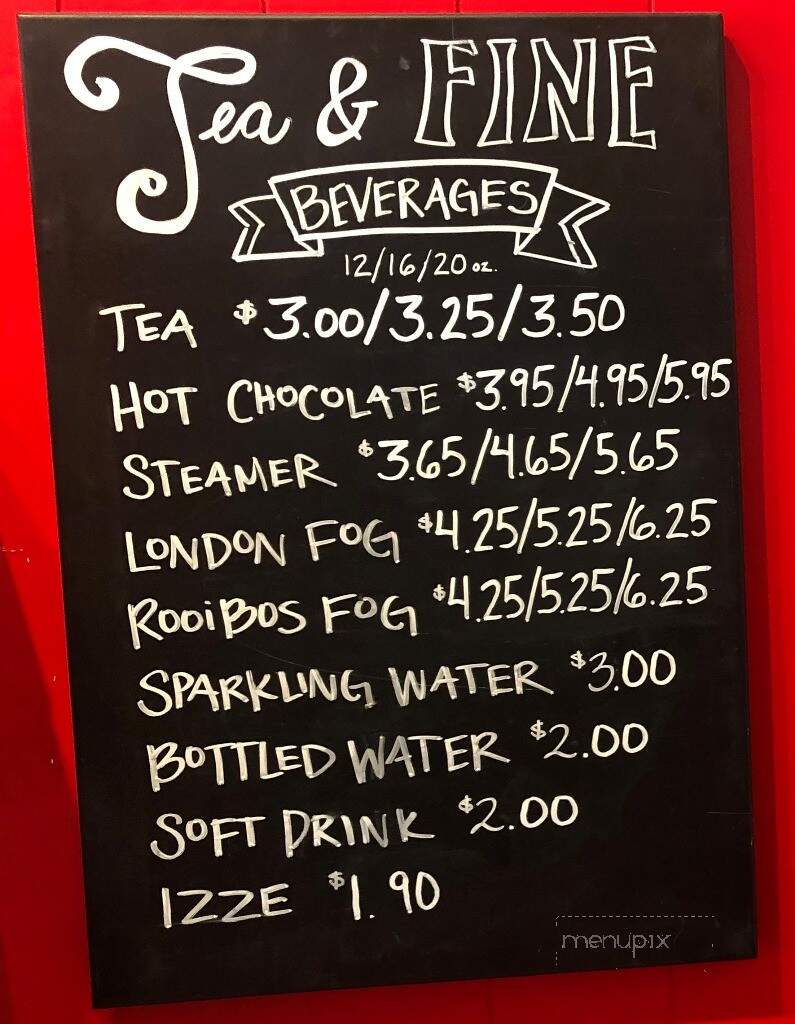 Tea & FINE
BEVERAGES
12/16/20 oz.
TEA $3.00/3.25/3.50
HOT CHOCOLATE $3.95/4.95/5.95
STEAMER $3.65/4.65/5.65
LONDON FOG $4.25/5.25/6.25
ROOiBOS FOG $4.25/5.25/6.25
SPARKLING WATER $3.00
BOTTLED WATER $2.00
SOFT DRINK $2.00
IZZE $1.90
menupix